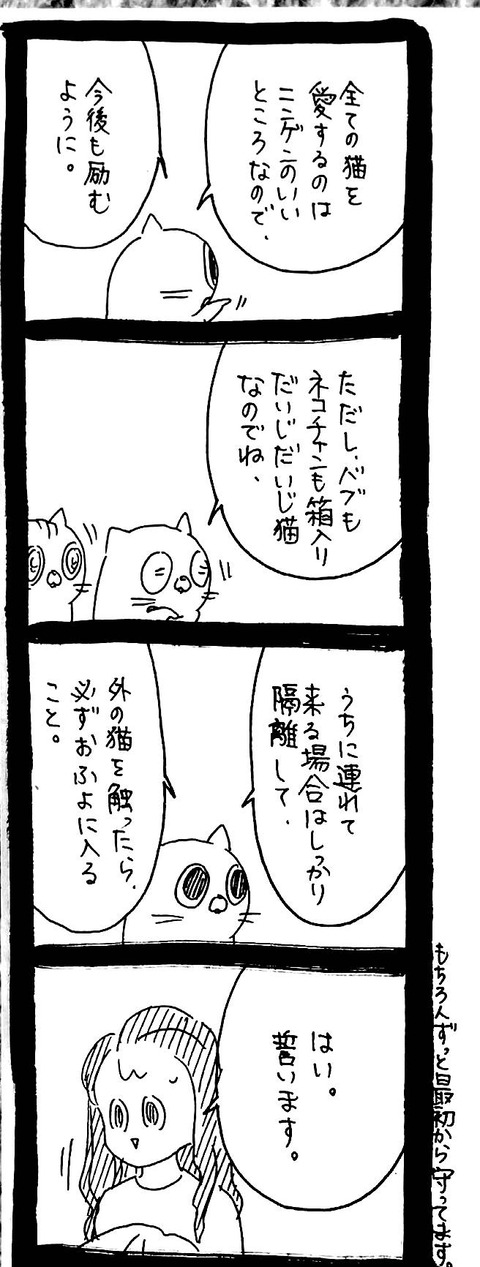 全ての猫を
愛するのは
ニンゲンのいい
ところなので、
今後も励む
ように。
ただし、バブも
ネコチャンも箱入り
だいじだいじ猫
なのでね、
うちに連れて
来る場合はしっかり
隔離して、
外の猫を触ったら、
必ずおふよに入る
こと。
はい。
誓います。
もちろんずっと最初から守ってます。